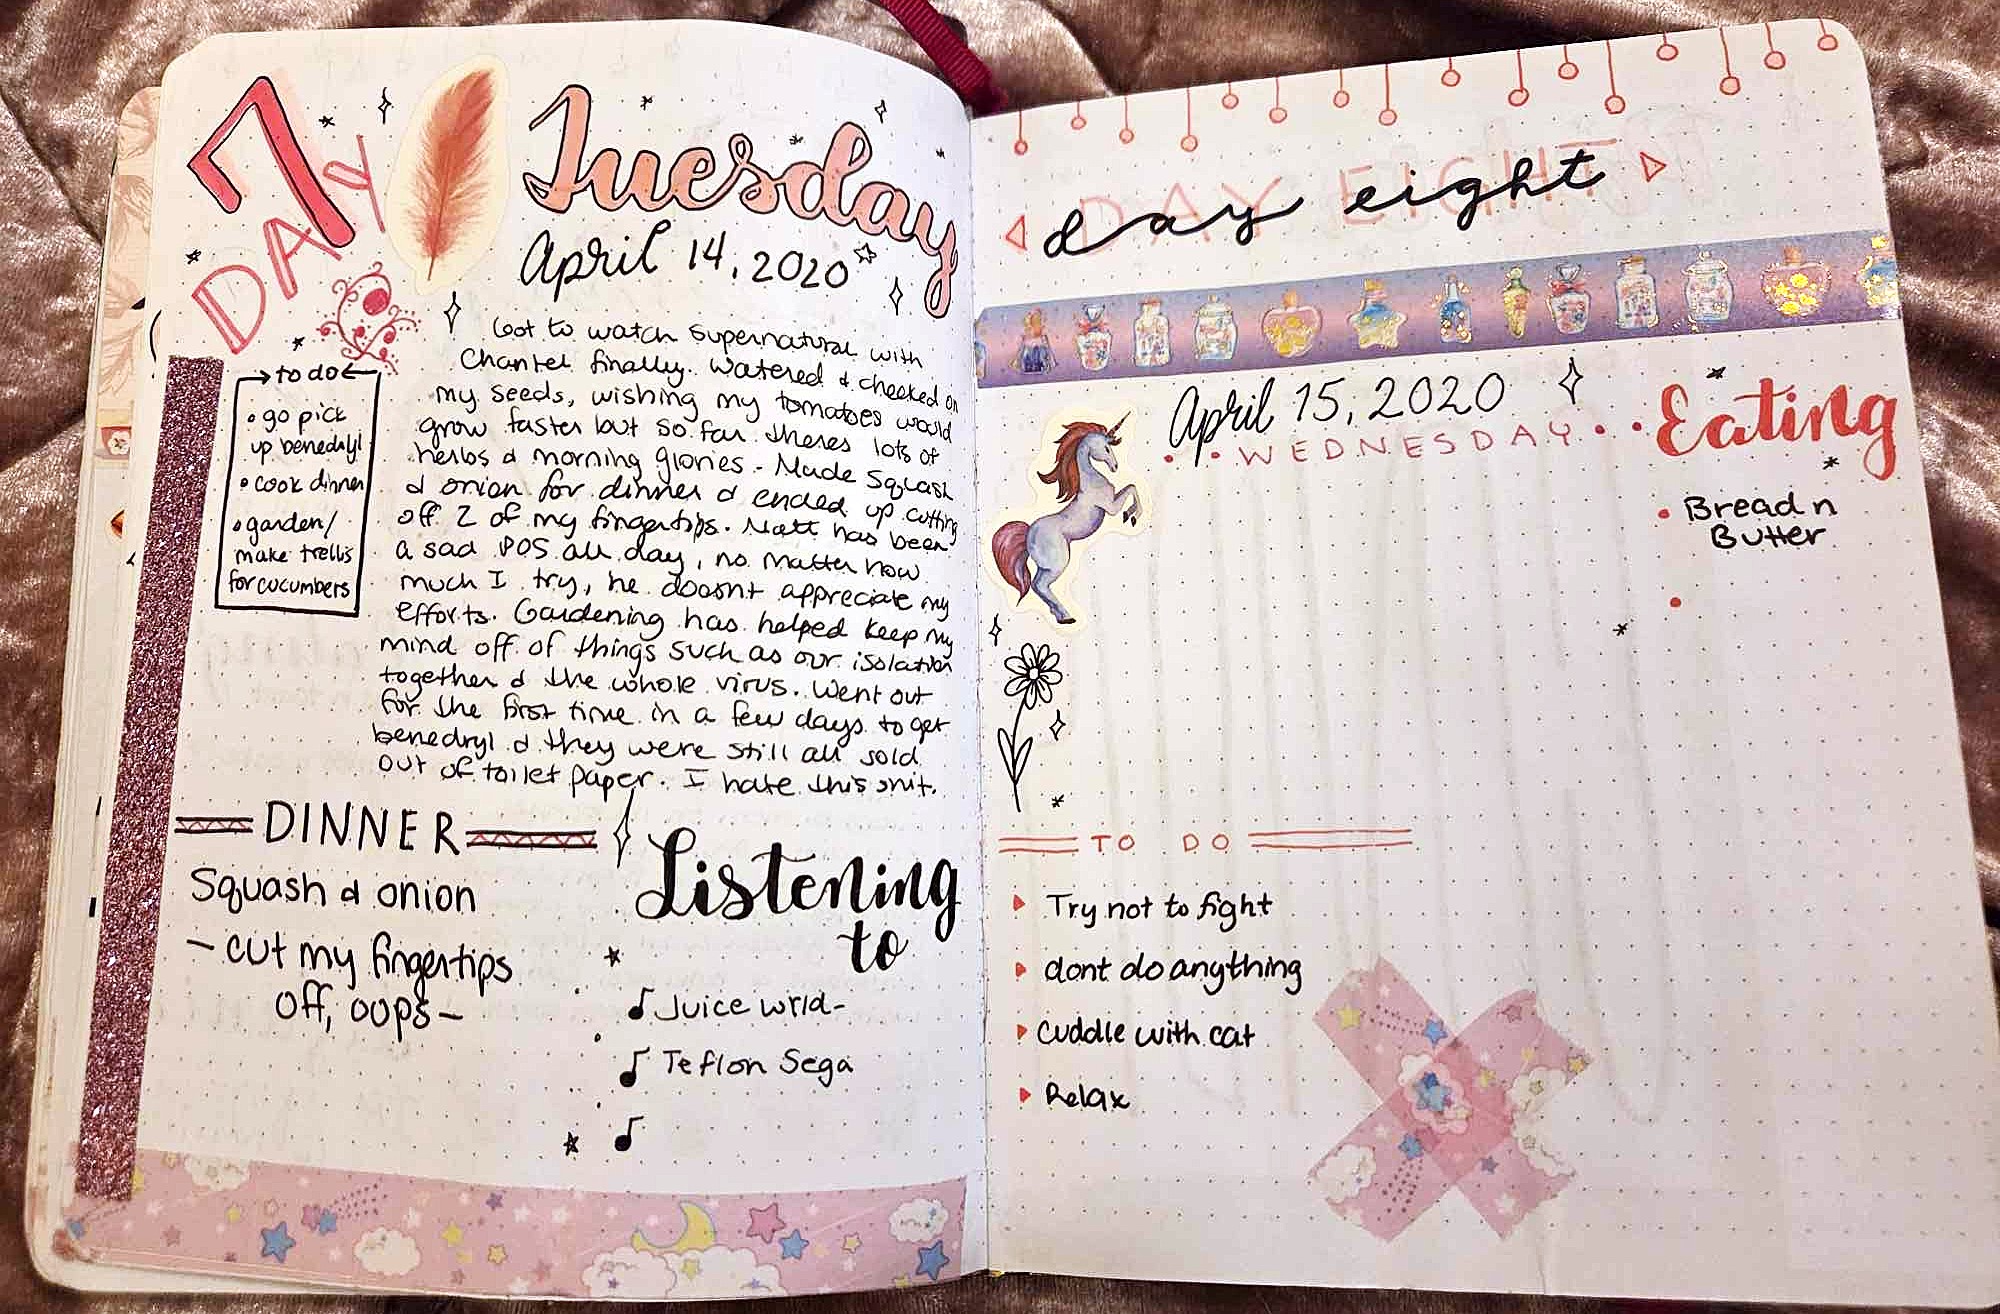 7
DAY
Tuesday
April 14, 2020
to do
• go pick
up benedryl
• cook dinner
• garden/
make trellis
for cucumbers
Got to watch supernatural with
Chantel finally. Watered & checked on
my seeds, wishing my tomatoes would
grow faster but so far theres lots of
herbs & morning glories. Made squash
& onion for dinner & ended up cutting
off 2 of my fingertips. Matt has been
a sad POS all day, no matter how
much I try, he doosnt appreciate my
efforts. Gardening has helped keep my
mind off of things such as our isolation
together & the whole virus. Went out
for the first time in a few days to get
benedryl & they were still all sold
out of toilet paper. I hate this shit.
DINNER
Squash & onion
- cut my fingertips
off, oops -
Listening
to
Juice wrld-
Teflon Sega
DAY EIGHT
day eight
April 15, 2020
WEDNESDAY
Eating
• Bread n
Butter
•
TO DO
Try not to fight
dont do anything
cuddle with cat
Relax